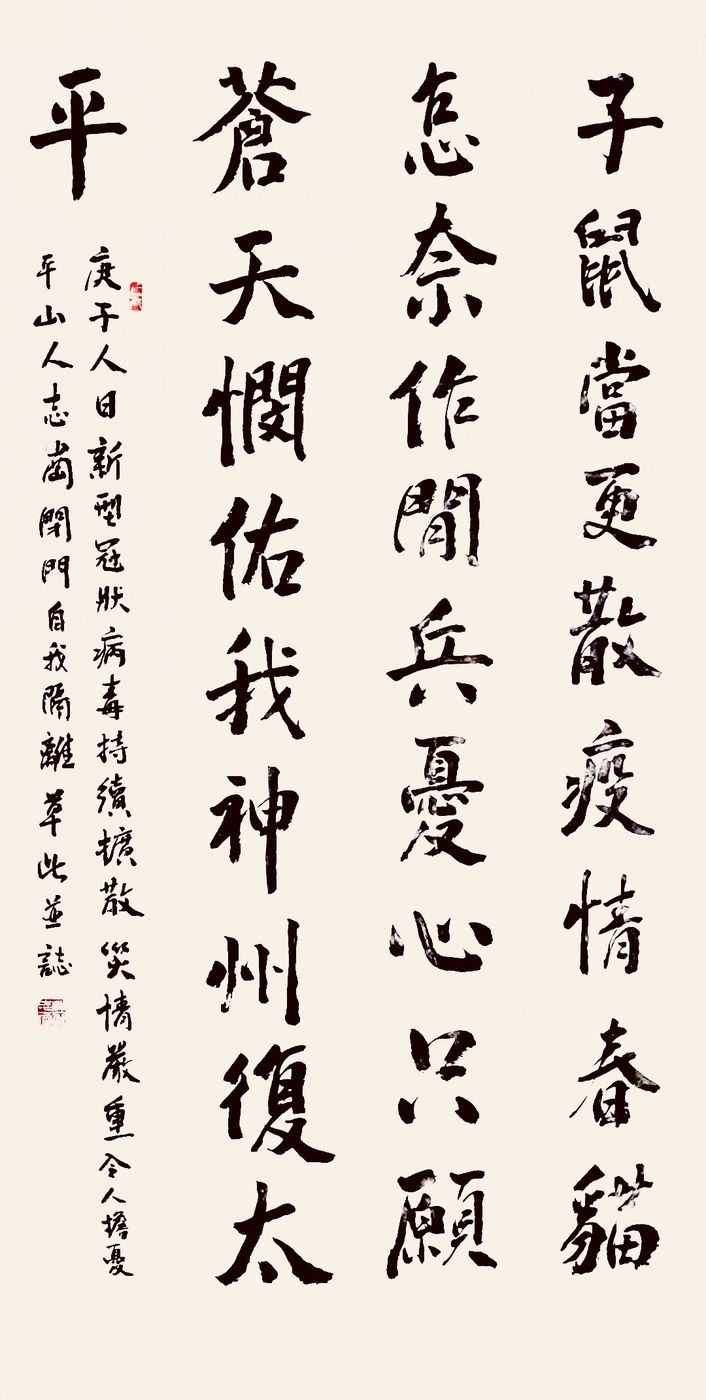 子鼠當更散疫情春貓
怎奈作閒兵憂心只願
蒼天憫佑我神州復太
平
庚子人日新型冠狀病毒持續擴散災情嚴重令人擔憂
平山人志崗閉門自我隔離草此並誌